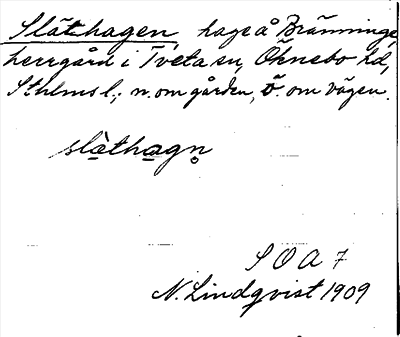 Släthagen, hage å Bränninge,
herrgård i Tveta sn, Öknebo hd,
Sthlms l.; n. om gården, ö. om vägen.
slàthagn̥
S O A 7
N. Lindqvist 1909